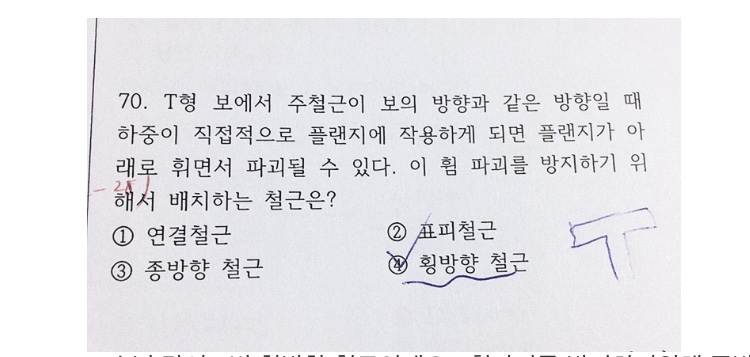 70. T형 보에서 주철근이 보의 방향과 같은 방향일 때
하중이 직접적으로 플랜지에 작용하게 되면 플랜지가 아
래로 휘면서 파괴될 수 있다. 이 휨 파괴를 방지하기 위
해서 배치하는 철근은?
① 연결철근
② 표피철근
③ 종방향 철근
④ 횡방향 철근